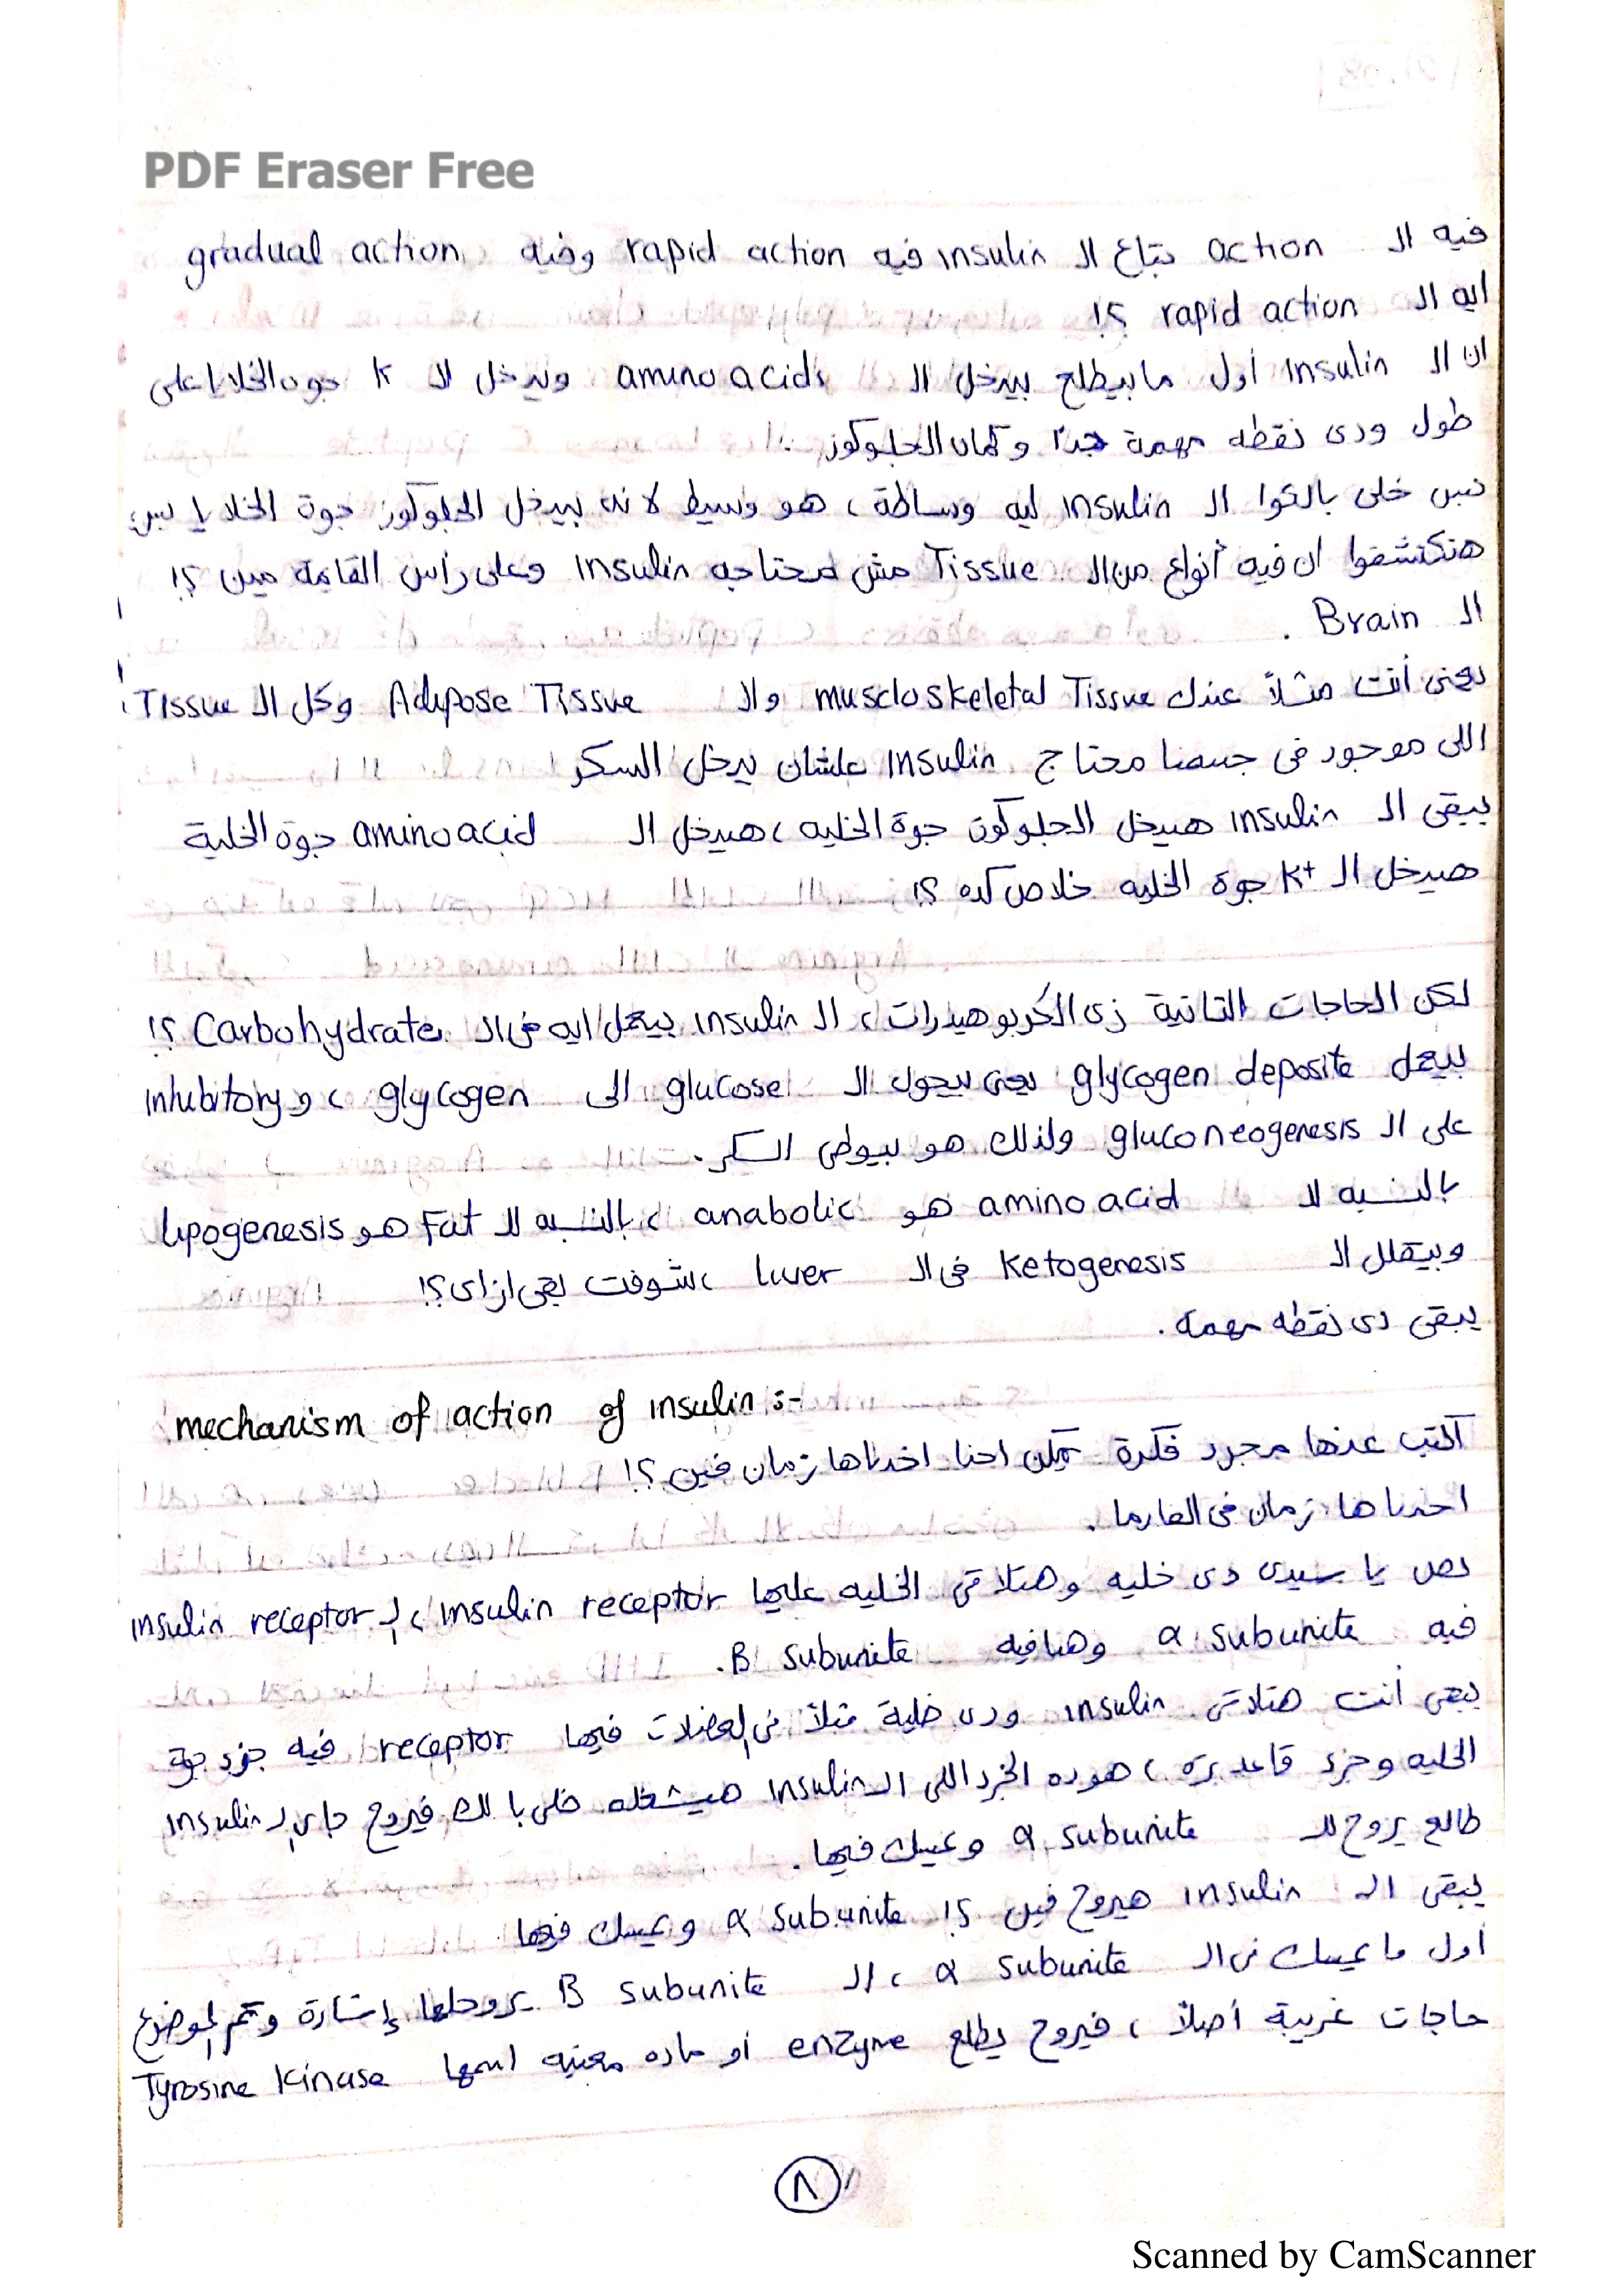 PDF Eraser Free
فيه الـ action بتاع الـ insulin فيه rapid action وفيه gradual action
ايه الـ rapid action ؟!
ان الـ insulin أول ما بيطلع بيدخل الـ amino acids ويدخل الـ K جوه الخلايا على
طول ودى نقطه مهمة جداً وكمان الجلوكوز .
بس خلى بالكوا الـ insulin ليه وساطة ، هو وسيط لانه بيدخل الجلوكوز جوة الخلايا بس
هتكتشفوا ان فيه أنواع من الـ Tissue مش محتاجه insulin وعلى رأس القايمة مين ؟!
الـ Brain .
يعنى أنت مثلاً عندك muscloskeletal Tissue والـ Adipose Tissue وكل الـ Tissue
اللى موجود فى جسمنا محتاج insulin علشان يدخل السكر
يبقى الـ insulin هيدخل الجلوكوز جوة الخليه ، هيدخل الـ amino acid جوة الخلية
هيدخل الـ K+ جوة الخليه خلاص كده ؟!
لكن الحاجات التانية زى الكربوهيدرات ، الـ insulin بيعمل ايه فى الـ Carbohydrate ؟!
بيعمل glycogen deposite يعنى بيحول الـ glucose الى glycogen ، و inhibitory
على الـ gluconeogenesis ولذلك هو بيوطى السكر .
بالنسبه لـ amino acid هو anabolic ، بالنسبه للـ Fat هو lipogenesis
وبيقلل الـ Ketogenesis فى الـ liver ، شوفت بقى ازاى ؟!
يبقى دى نقطه مهمه .
mechanism of action of insulin :-
اكتب عنها مجرد فكرة يمكن احنا اخدناها زمان فين ؟!
اخدناها زمان فى الفارما .
بص يا سيدى دى خليه وهتلاقى الخليه عليها insulin receptor ، الـ insulin receptor
فيه α subunite وهنا فيه B subunite .
يبقى أنت هتلاقى insulin ودى خلية مثلاً فى العضلات فيها receptor فيه جزء جوة
الخليه وجزء قاعد بره ، هو ده الجزء اللى الـ insulin هيشغله خلى بالك فيروح جاى الـ insulin
طالع يروح للـ α subunite ويمسك فيها .
يبقى الـ insulin هيروح فين ؟! α subunite ويمسك فيها
أول ما يمسك فى الـ α subunite ، الـ B subunite يروحلها إشارة ويتم الموضوع
حاجات غريبة أصلاً ، فيروح يطلع enzyme أو ماده معينه اسمها Tyrosine Kinase
٨
Scanned by CamScanner